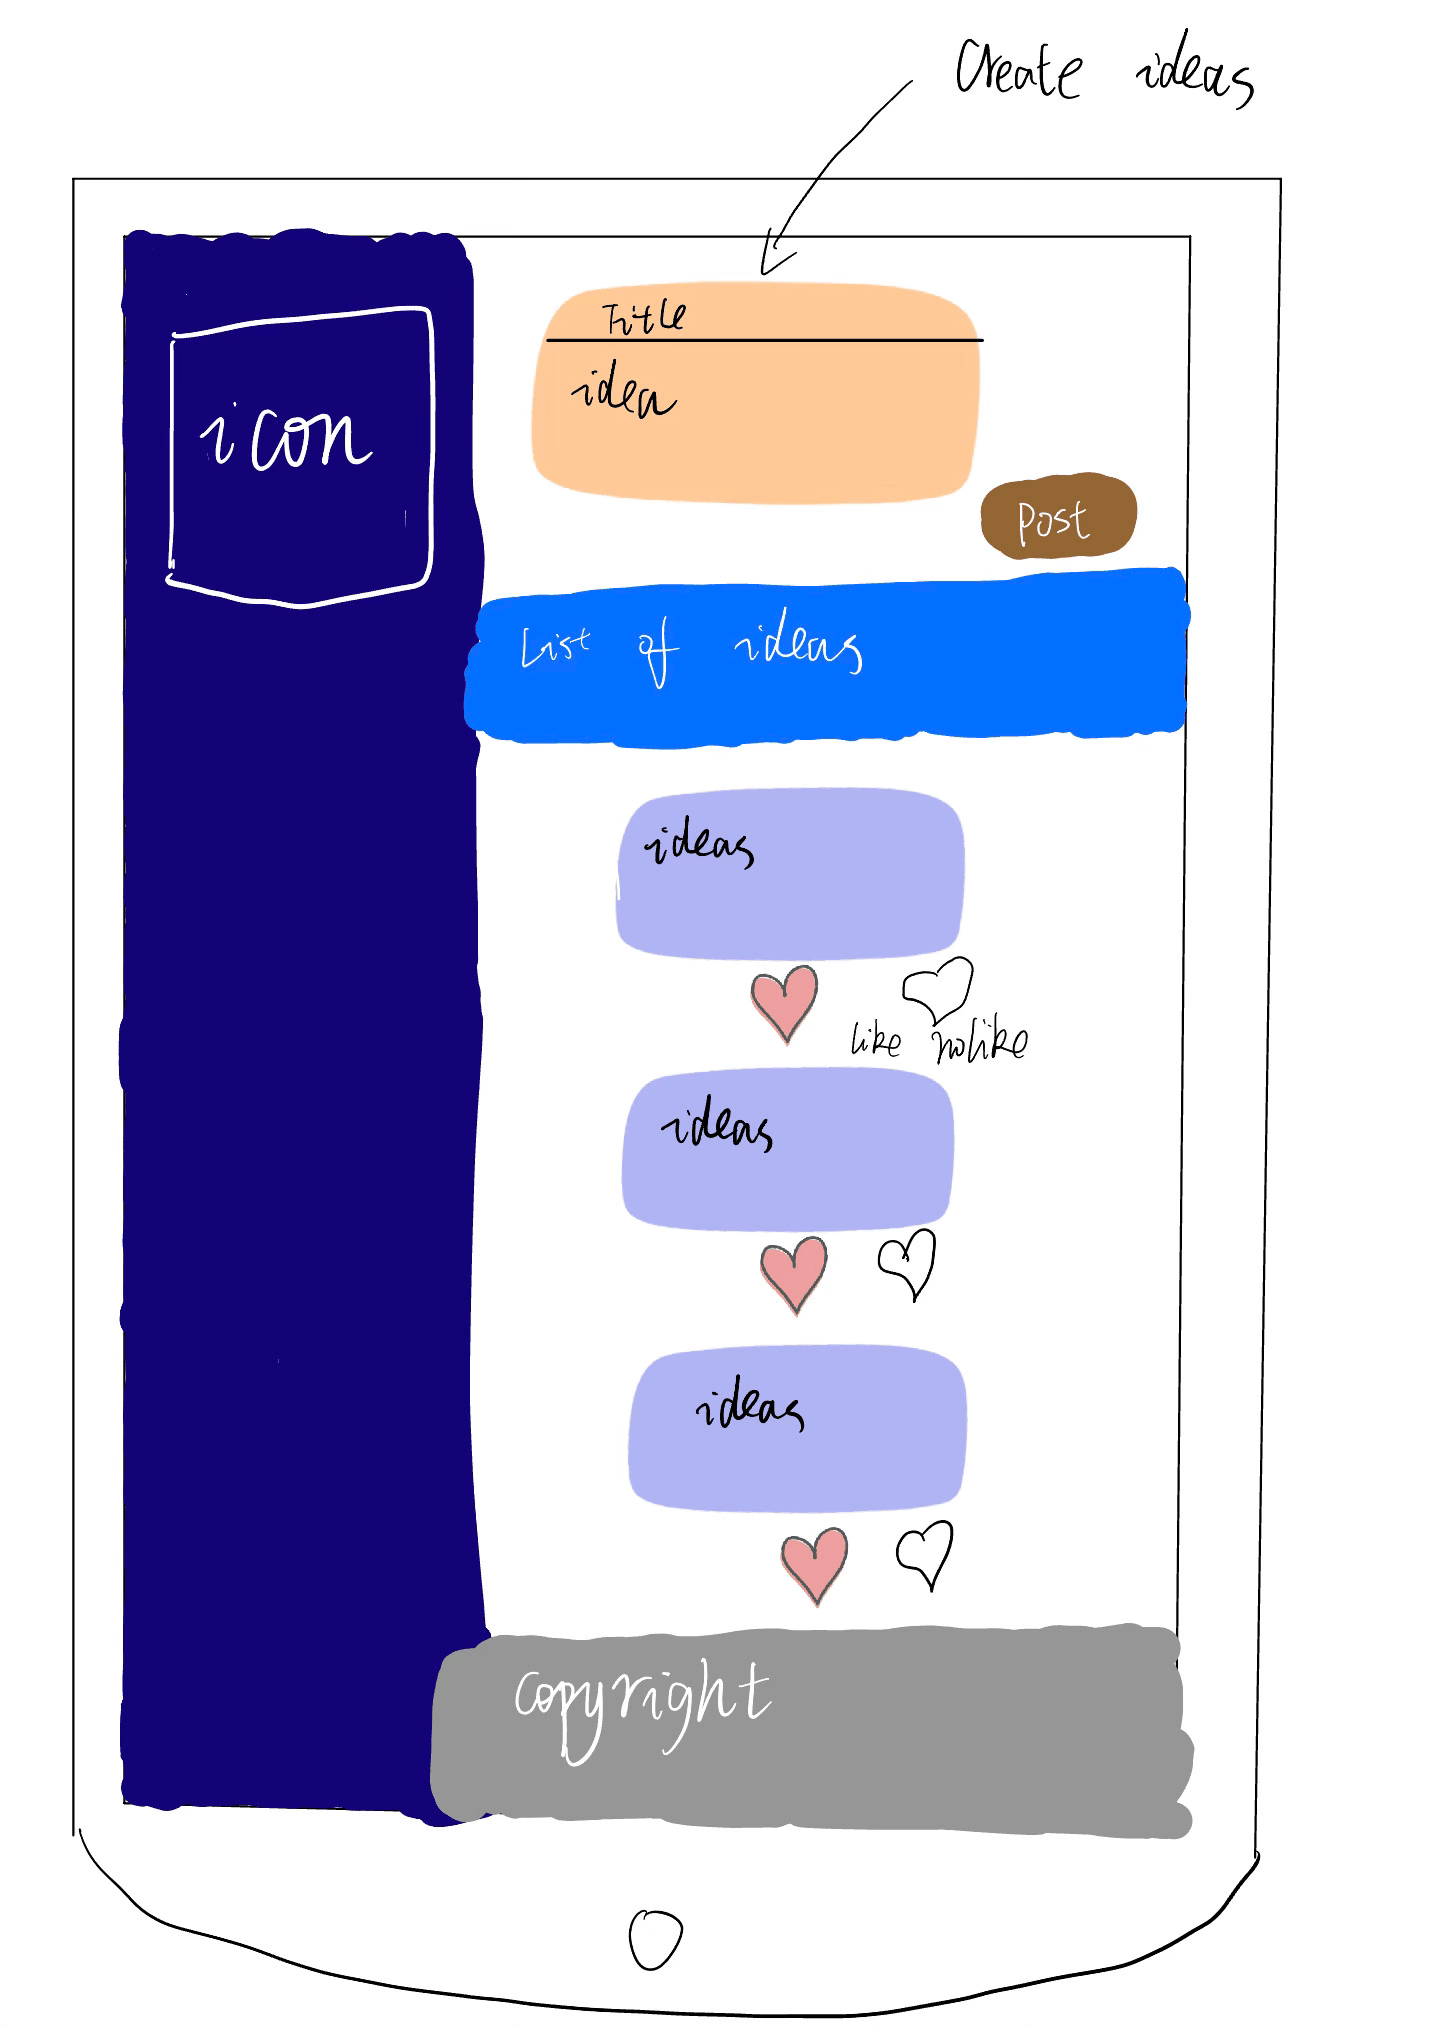 Create ideas
Title
idea
icon
post
List of ideas
ideas
like nolike
ideas
ideas
copyright